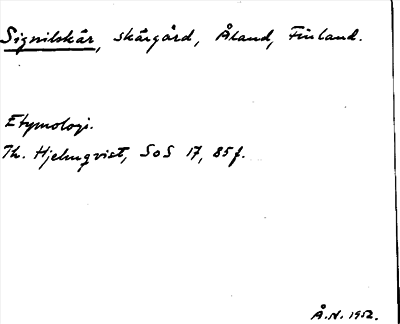 Signilskär, skärgård, Åland, Finland.
Etymologi.
Th. Hjelmqvist, SoS 17, 85 f.
Å.N. 1952.